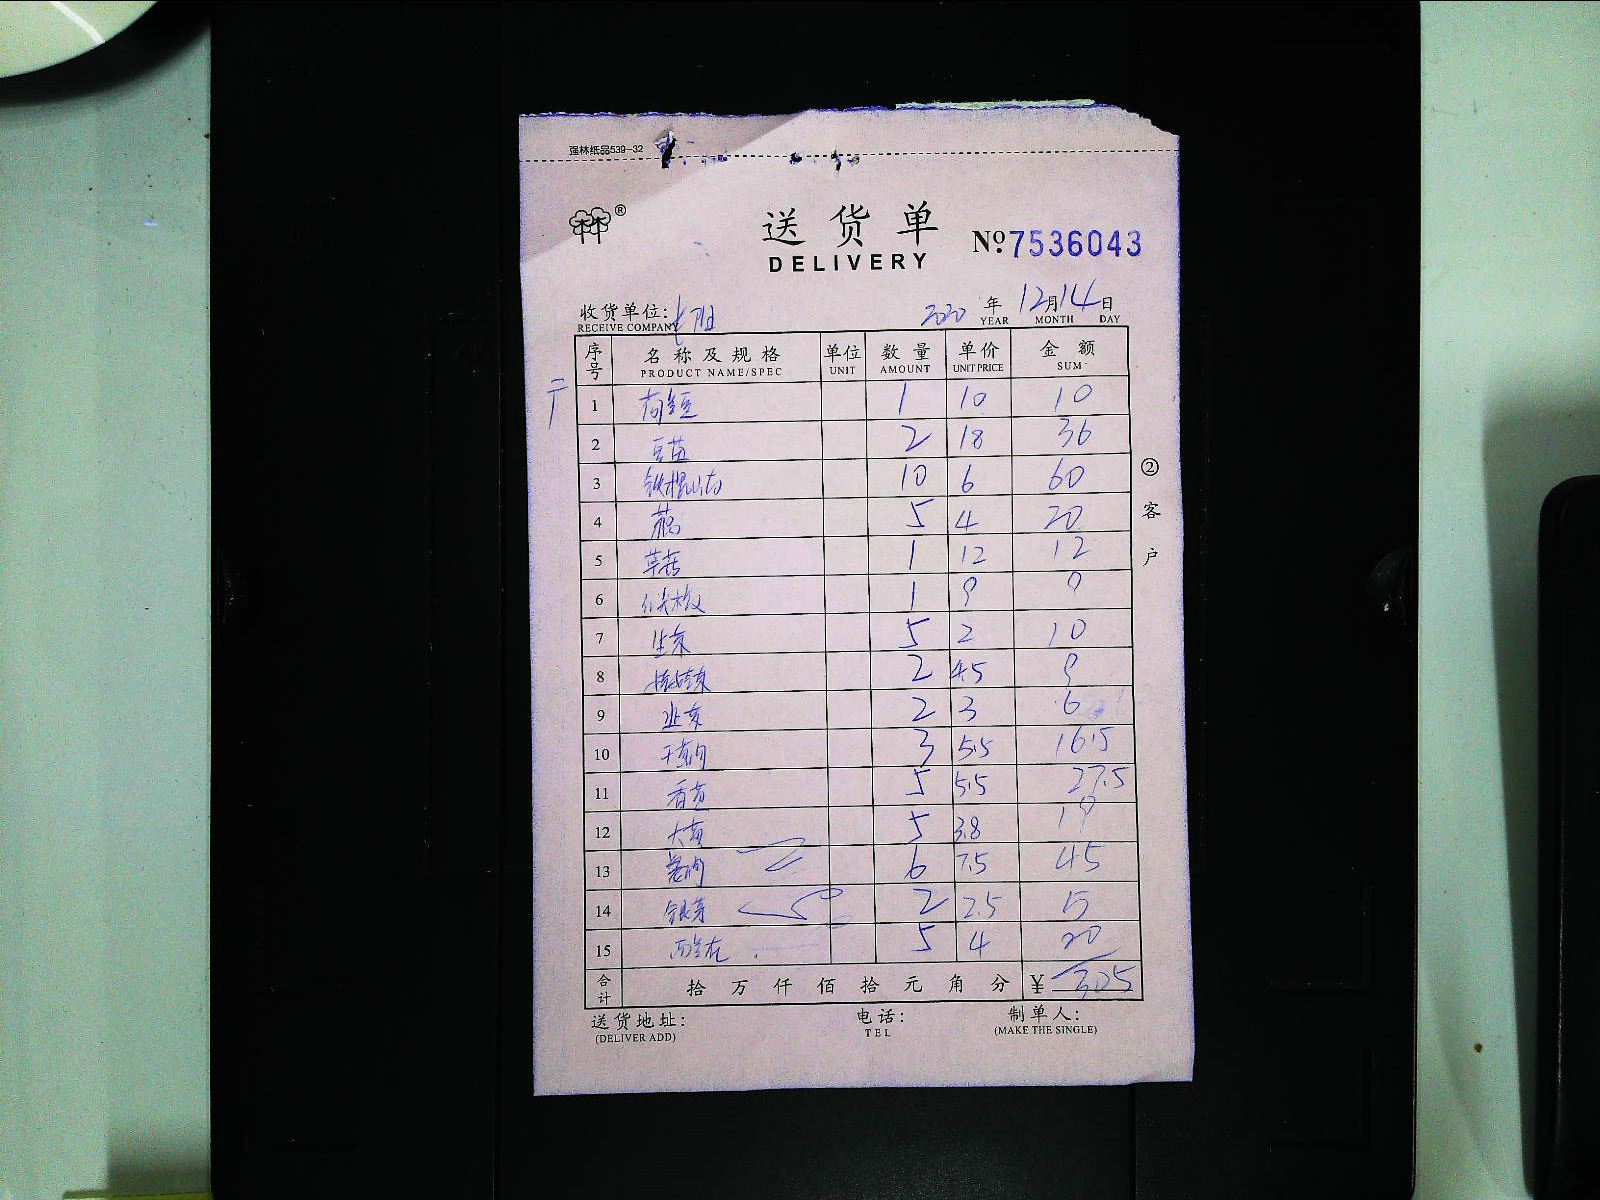 强林纸品539-32
®
送货单
DELIVERY
№7536043
收货单位:
RECEIVE COMPANY
2020 年 12月14日
YEAR MONTH DAY
序号 名称及规格 单位 数量 单价 金额
PRODUCT NAME/SPEC UNIT AMOUNT UNIT PRICE SUM
1 荷兰豆 1 10 10
2 豆苗 2 18 36
3 铁棍山药 10 6 60
4 5 4 20
5 草菇 1 12 12
6 1 9 9
7 生菜 5 2 10
8 2 4.5 9
9 2 3 6
10 3 5.5 16.5
11 香芹 5 5.5 27.5
12 大葱 5 3.8 19
13 6 7.5 45
14 银芽 2 2.5 5
15 西兰花 5 4 20
合计 拾万仟佰拾元角分 ¥ 305
送货地址: 电话: 制单人:
(DELIVER ADD) TEL (MAKE THE SINGLE)
②客户